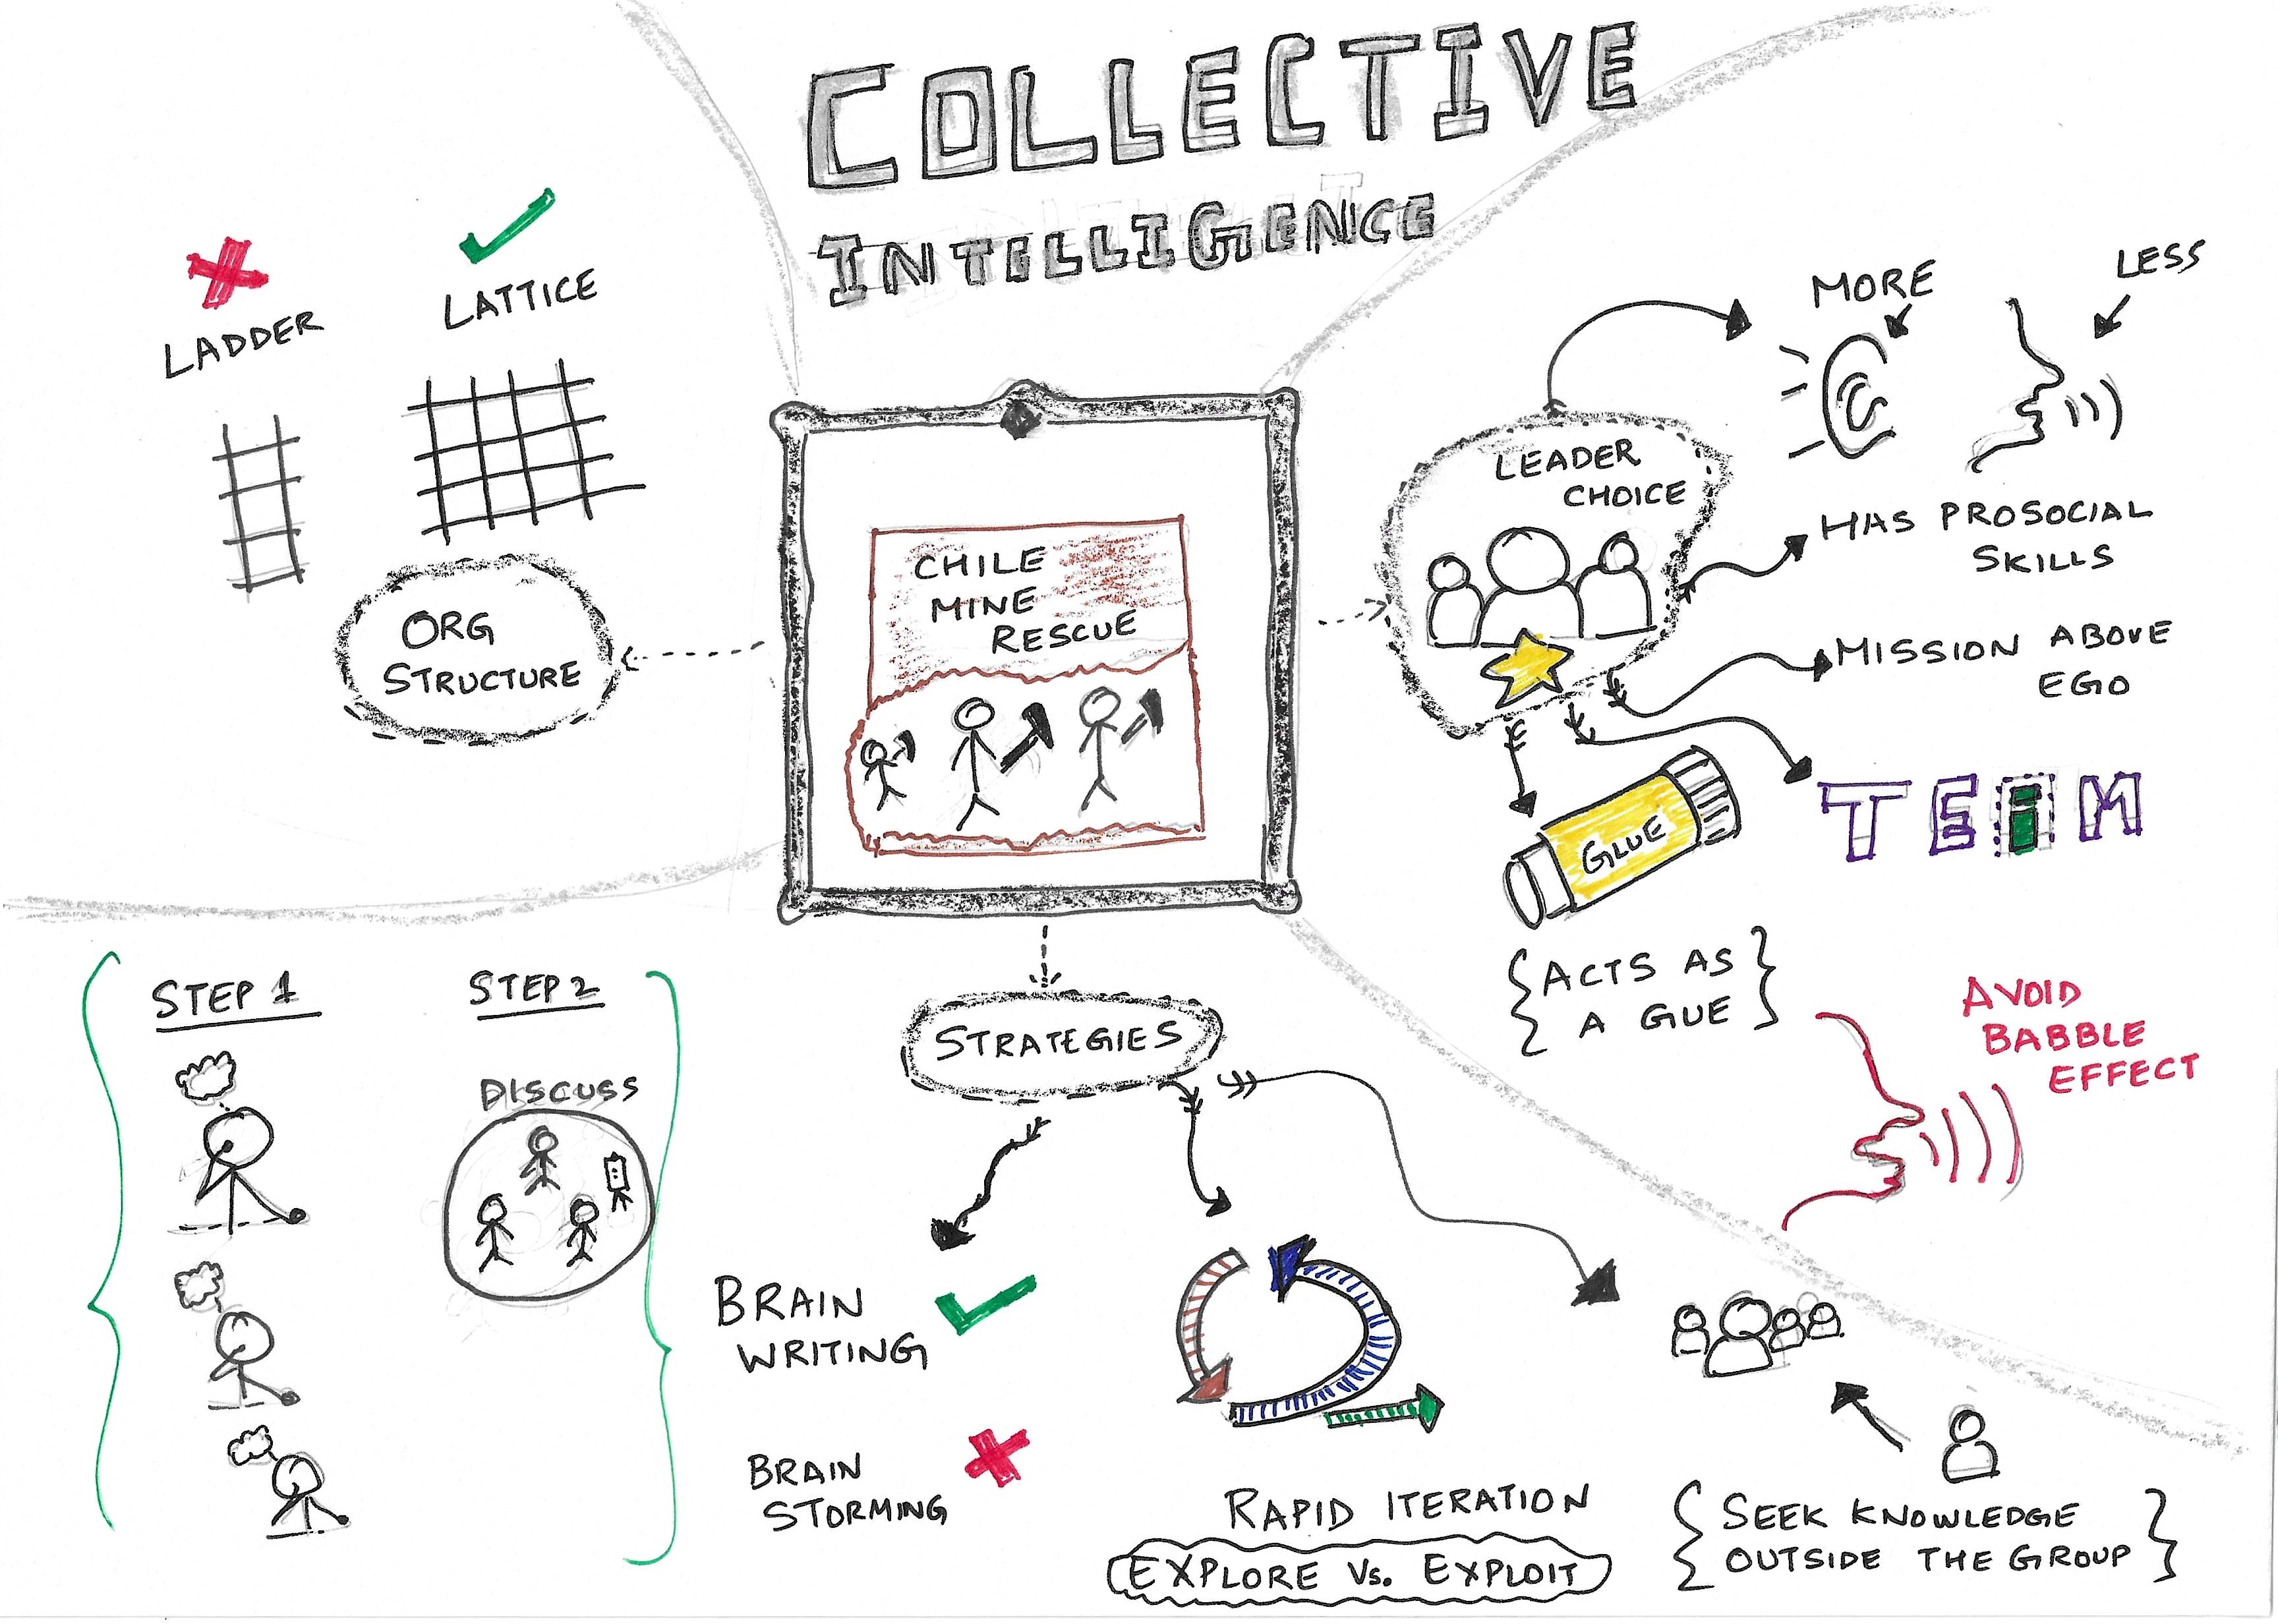 COLLECTIVE
INTELLIGENCE
LADDER
LATTICE
ORG
STRUCTURE
CHILE
MINE
RESCUE
LEADER
CHOICE
MORE
LESS
HAS PROSOCIAL
SKILLS
MISSION ABOVE
EGO
TEAM
GLUE
{ACTS AS
A GLUE}
AVOID
BABBLE
EFFECT
STRATEGIES
STEP 1
STEP 2
DISCUSS
BRAIN
WRITING
BRAIN
STORMING
RAPID ITERATION
EXPLORE Vs. EXPLOIT
{SEEK KNOWLEDGE
OUTSIDE THE GROUP}